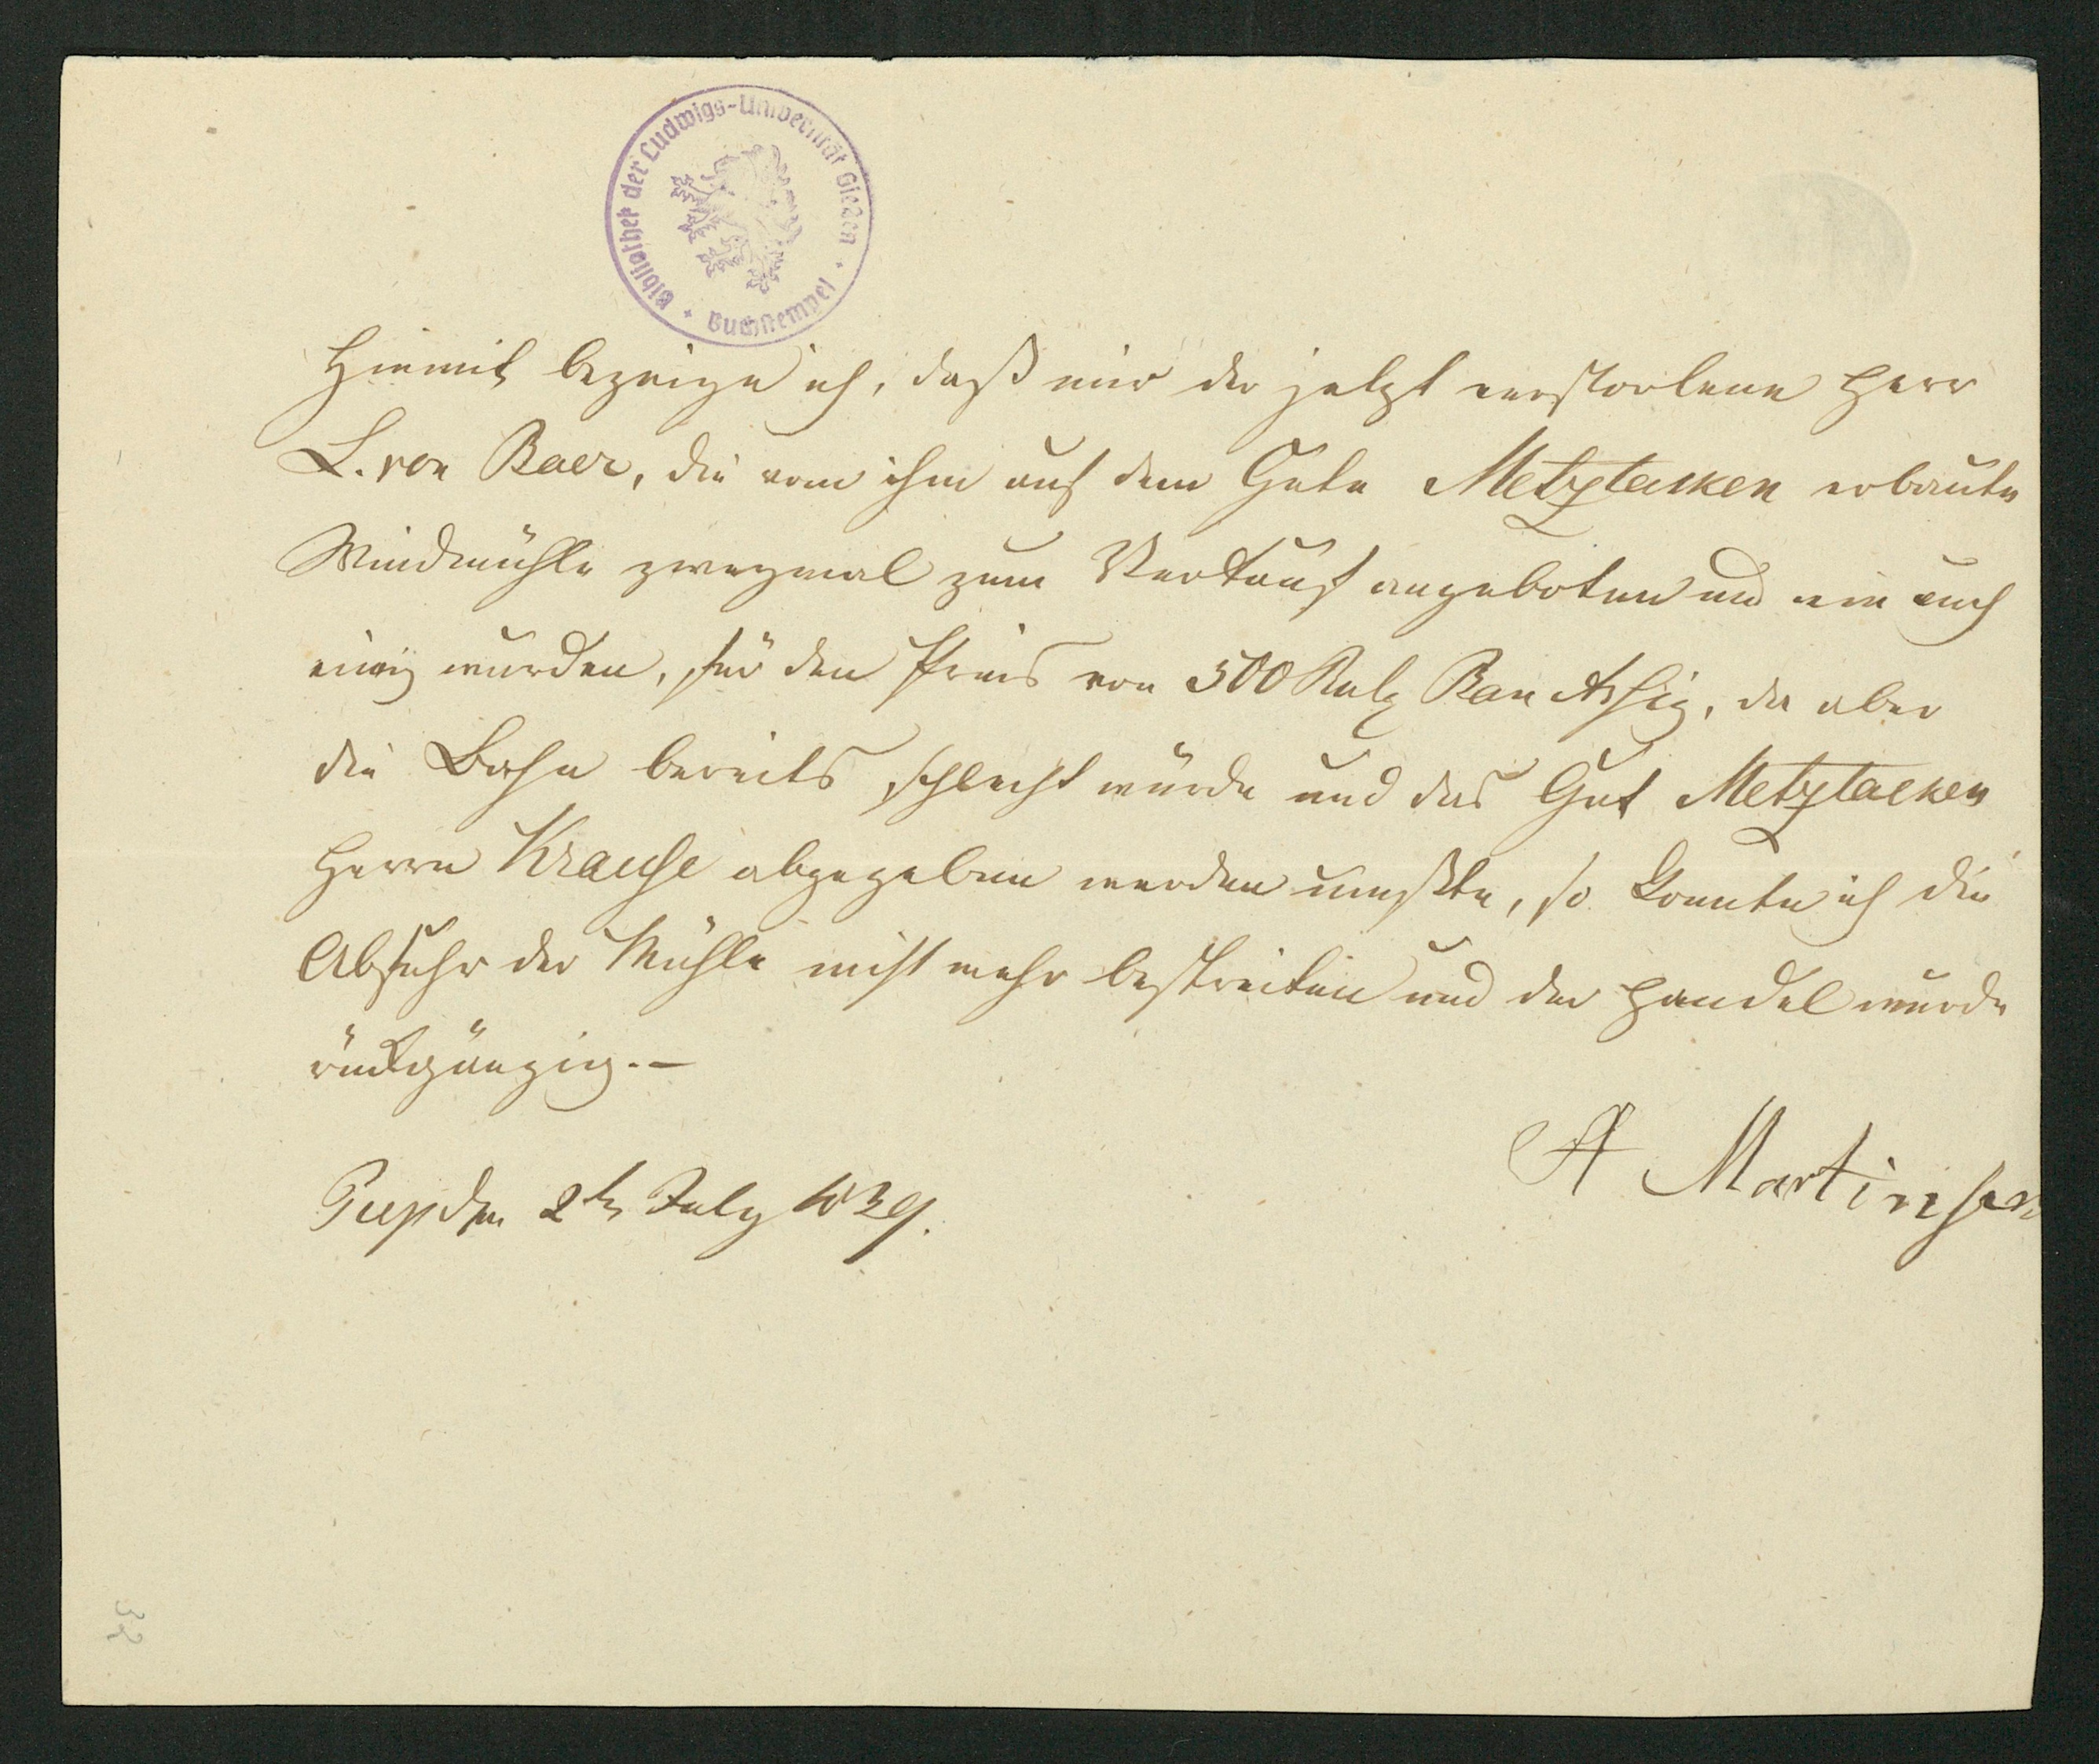 Bibliothek der Ludwigs-Universität Gießen
Buchstempel
Hiemit bezeige ich, daß mir der jetzt verstorbene Herr
L. von Baer, die vom ihm auf dem Gute Metztacken erbaute
Windmühle zweymal zum Verkauf angeboten und wir auch
einig wurden, für den Preis von 500 Rub Ban Assig, da aber
die Bahn bereits schlecht wurde und das Gut Metztacken
Herrn Krause abgegeben werden mußte, so konnte ich die
Abfuhr der Mühle nicht mehr bestreiten und der Handel wurde
rückgängig. –
A Martinsen
den 2t July 1839.
32